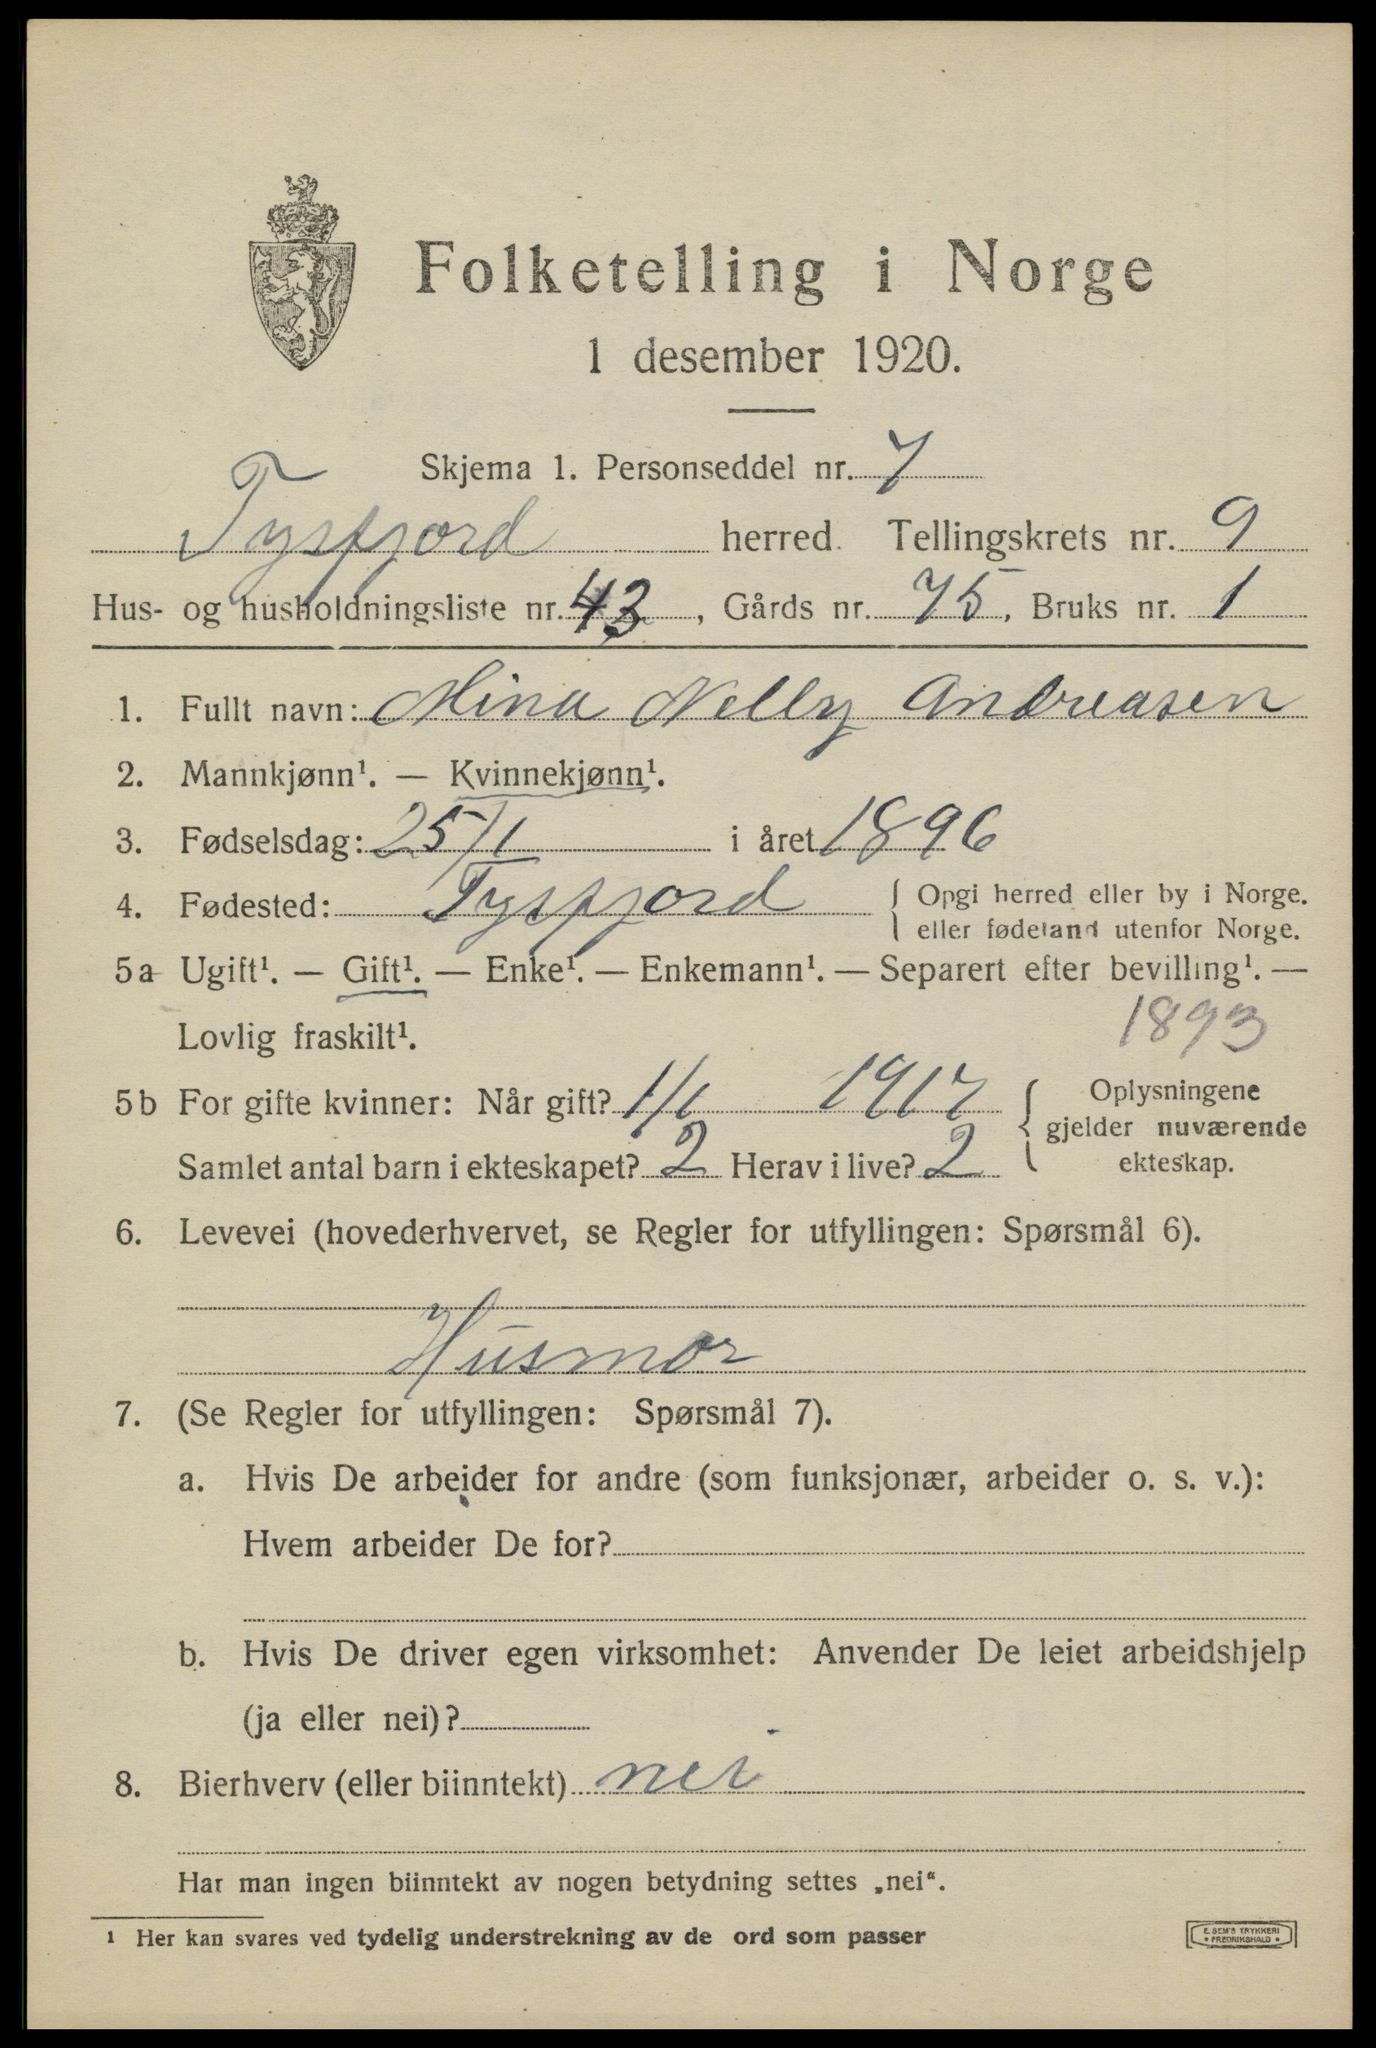 Folketelling i Norge
1 desember 1920.
Skjema 1. Personseddel nr. 7
Tysfjord herred. Tellingskrets nr. 9
Hus- og husholdningsliste nr. 43, Gårds nr. 75, Bruks nr. 1
1. Fullt navn: Mina Nelly Andreasen
2. Mannkjønn¹. — Kvinnekjønn¹.
3. Fødselsdag: 25/1 i året 1896
4. Fødested: Tysfjord { Opgi herred eller by i Norge.
eller fødeland utenfor Norge.
5a Ugift¹. — Gift¹. — Enke¹. — Enkemann¹. — Separert efter bevilling¹. —
Lovlig fraskilt¹. 1893
5b For gifte kvinner: Når gift? 1/1 1917 { Oplysningene
gjelder nuværende
Samlet antal barn i ekteskapet? 2 Herav i live? 2 ekteskap.
6. Levevei (hovederhvervet, se Regler for utfyllingen: Spørsmål 6).
Husmor
7. (Se Regler for utfyllingen: Spørsmål 7).
a. Hvis De arbeider for andre (som funksjonær, arbeider o. s. v.):
Hvem arbeider De for?
b. Hvis De driver egen virksomhet: Anvender De leiet arbeidshjelp
(ja eller nei)?
8. Bierhverv (eller biinntekt) nei
Har man ingen biinntekt av nogen betydning settes „nei“.
¹ Her kan svares ved tydelig understrekning av de ord som passer
E. SEM'S TRYKKERI
* FREDRIKSHALD *